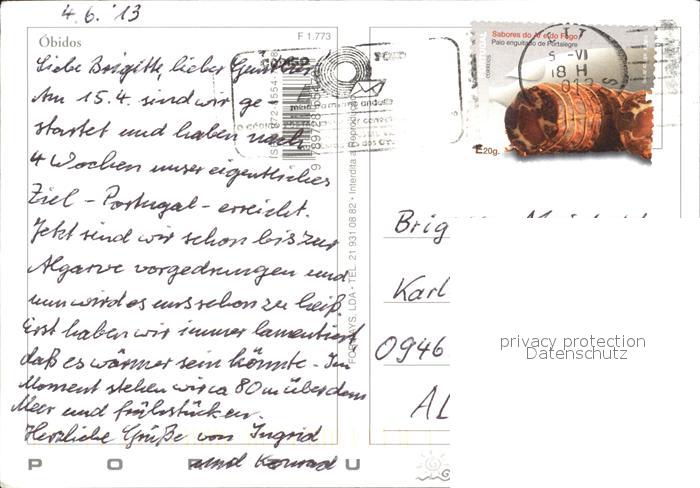 4.6.'13
Óbidos
F 1.773
Liebe Brigitte, lieber
Am 15.4. sind wir ge-
startet und haben nach
4 Wochen unser eigentliches
Ziel - Portugal - erreicht.
Jetzt sind wir schon bis zur
Algarve vorgedrungen und
nun wird es uns schon zu heiß.
Erst haben wir immer lamentiert
daß es wärmer sein könnte. Im
Moment stehen wir ca 80 m über dem
Meer und frühstücken.
Herzliche Grüße von Ingrid
und Konrad
P O R U
TEL. 21 931 08 82 • Interdita a Reprodução
Sabores do Ar e do Fogo
Paio enguitado de Portalegre
CORREIOS
E20g.
Brig
Karl
0946
AL
privacy protection
Datenschutz